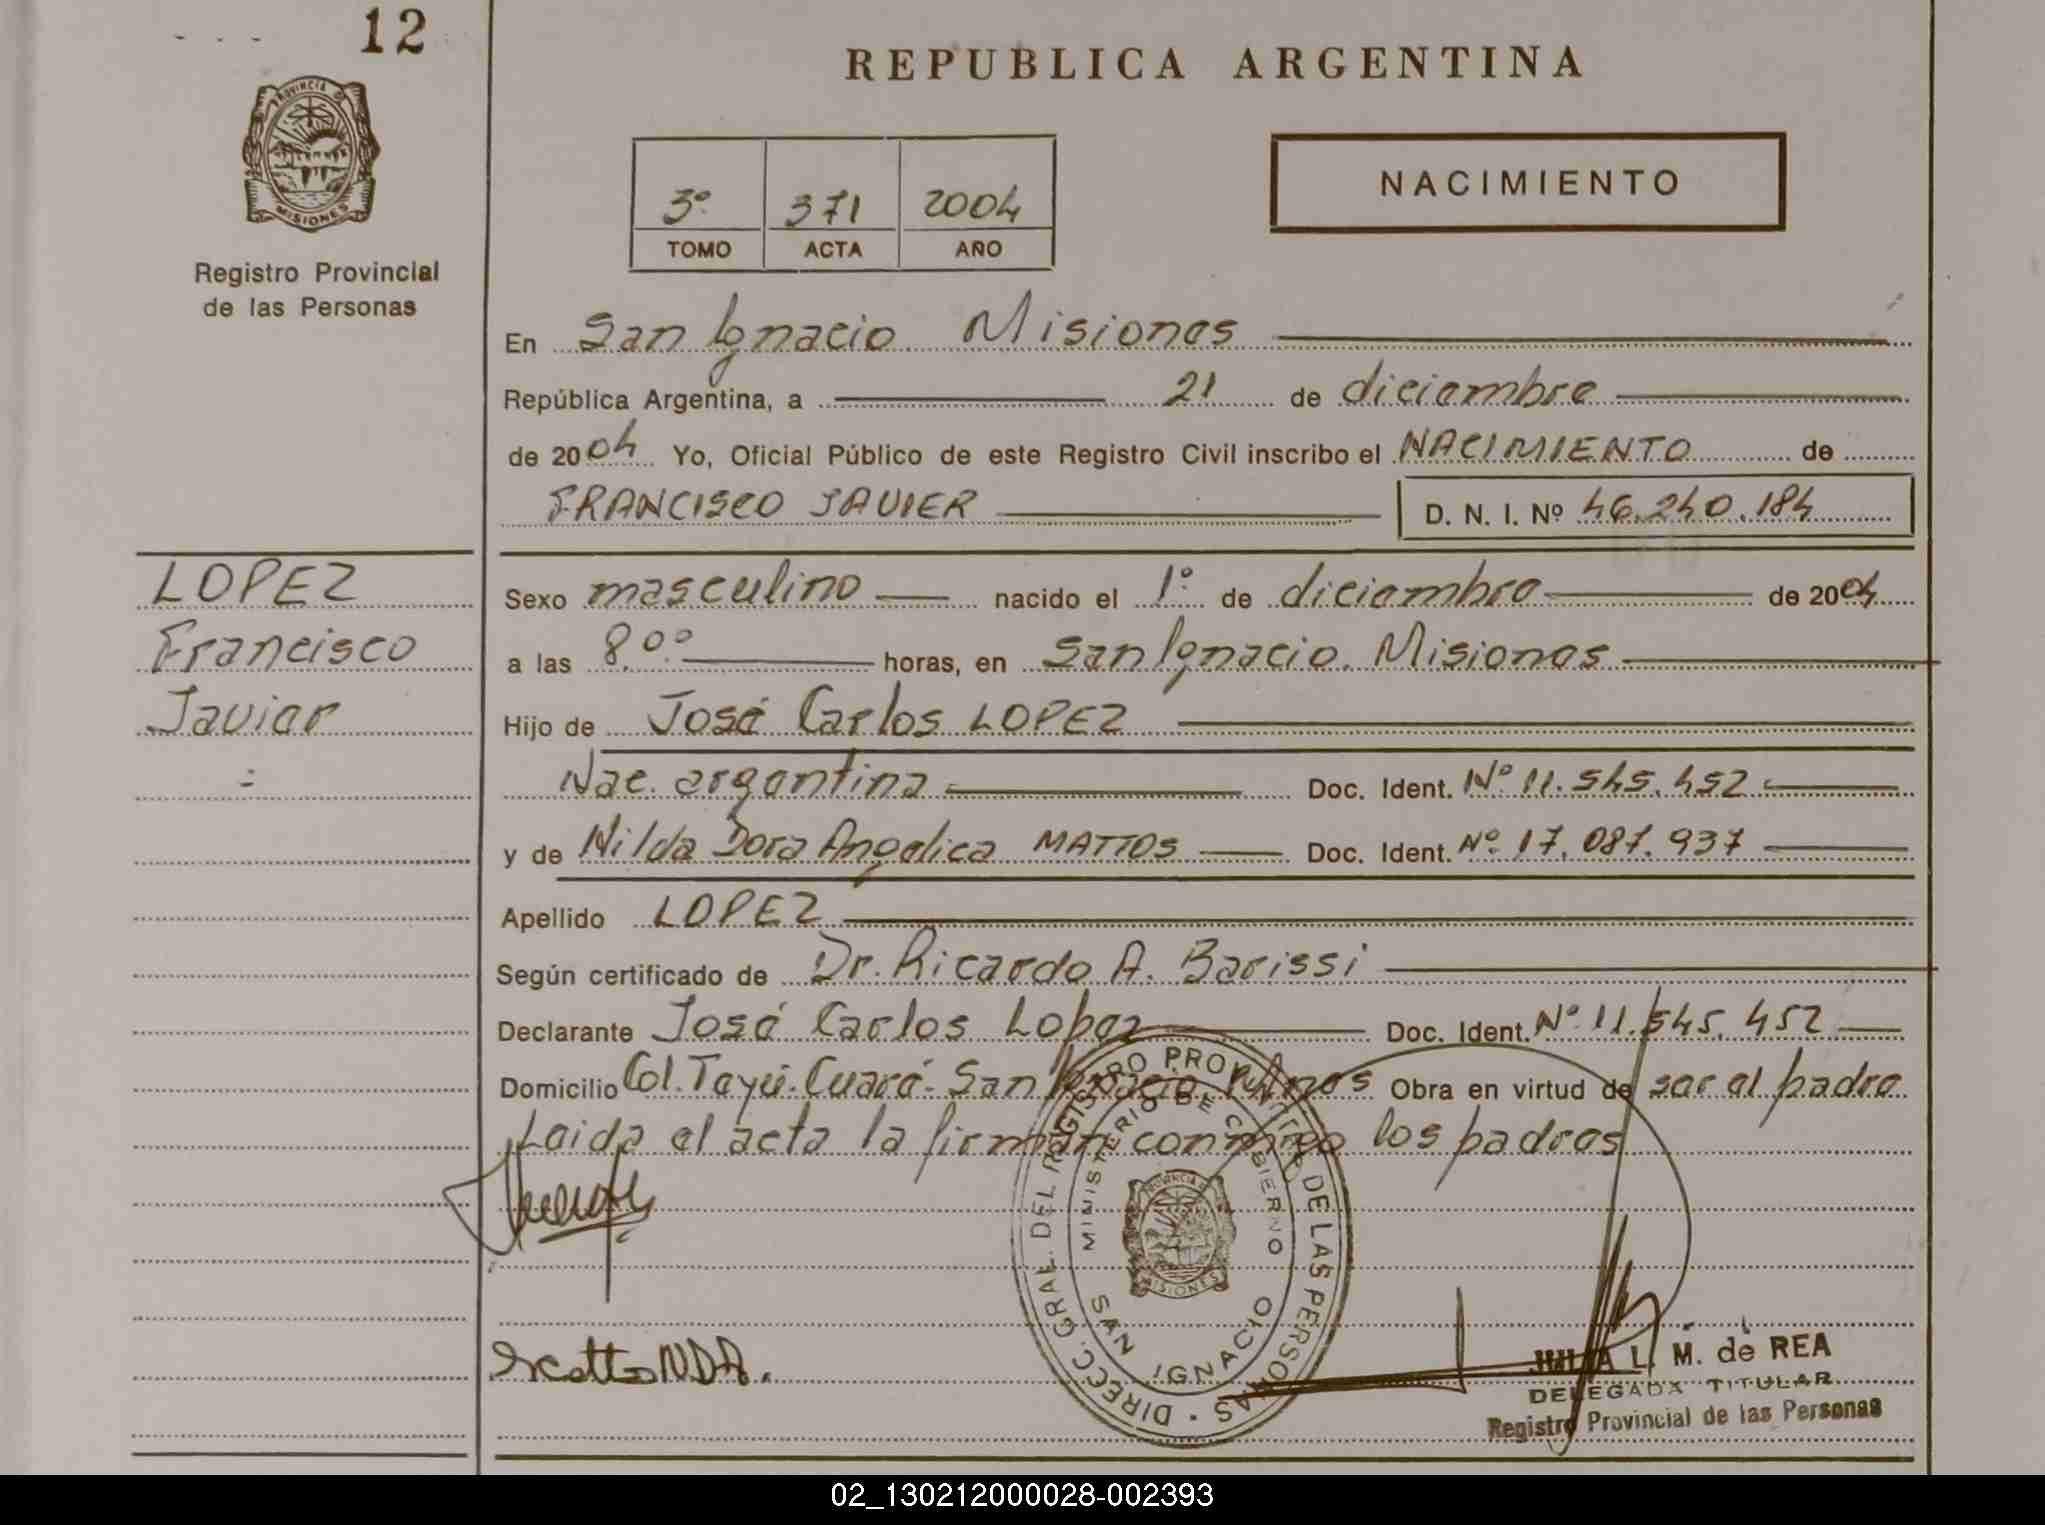 12
REPUBLICA ARGENTINA
PROVINCIA DE
MISIONES
Registro Provincial
de las Personas
3º 371 2004
TOMO ACTA AÑO
NACIMIENTO
En San Ignacio Misiones
República Argentina, a 21 de diciembre
de 2004 Yo, Oficial Público de este Registro Civil inscribo el NACIMIENTO de
FRANCISCO JAVIER D. N. I. Nº 46.240.184
LOPEZ
Francisco
Javier
Sexo masculino nacido el 1º de diciembre de 2004
a las 8.ºº horas, en San Ignacio. Misiones
Hijo de José Carlos LOPEZ
Nac. argentina Doc. Ident. Nº 11.545.452
y de Nilda Dora Angelica MATTOS Doc. Ident. Nº 17.087.937
Apellido LOPEZ
Según certificado de Dr. Ricardo A. Barissi
Declarante José Carlos Lopez Doc. Ident. Nº 11.545.452
Domicilio Col. Teyú. Cuaré - San Ignacio Mnes Obra en virtud de ser el padre
Leida el acta la firman conmigo los padres
DIRECC. GRAL. DEL REGISTRO PROVINCIAL DE LAS PERSONAS
MINISTERIO DE GOBIERNO
PROVINCIA DE
MISIONES
SAN IGNACIO
NDA.
JULIA L. M. de REA
DELEGADA TITULAR
Registro Provincial de las Personas
02_130212000028-002393